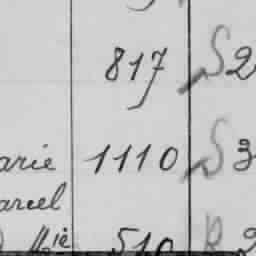 817 S 2
arie 1110 S 3
arcel
Mie 510 R 2